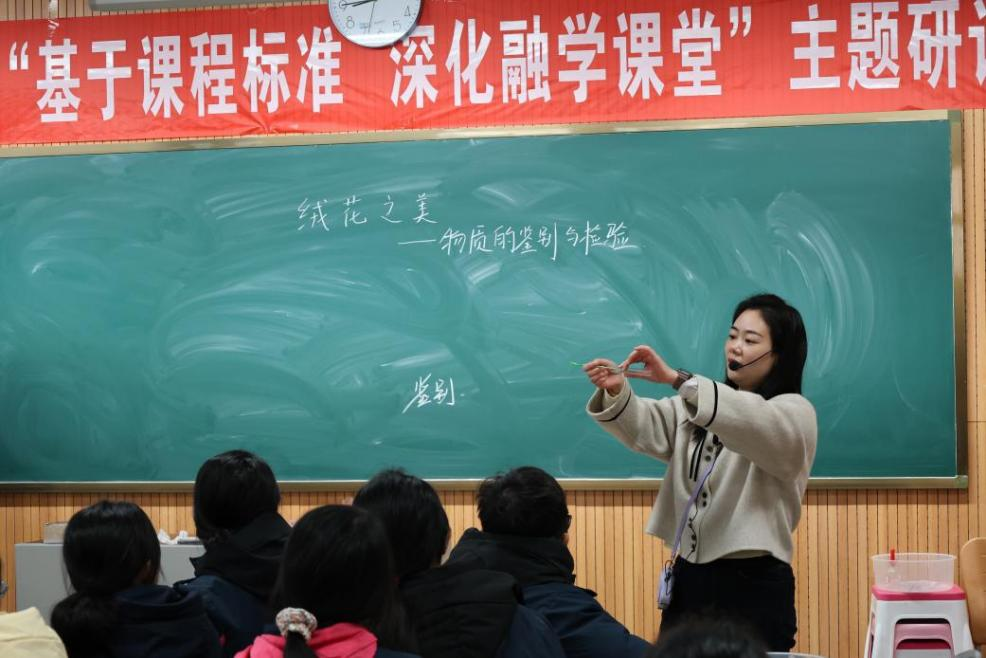 “基于课程标准 深化融学课堂” 主题研
绒花之美
——物质的鉴别与检验
鉴别.